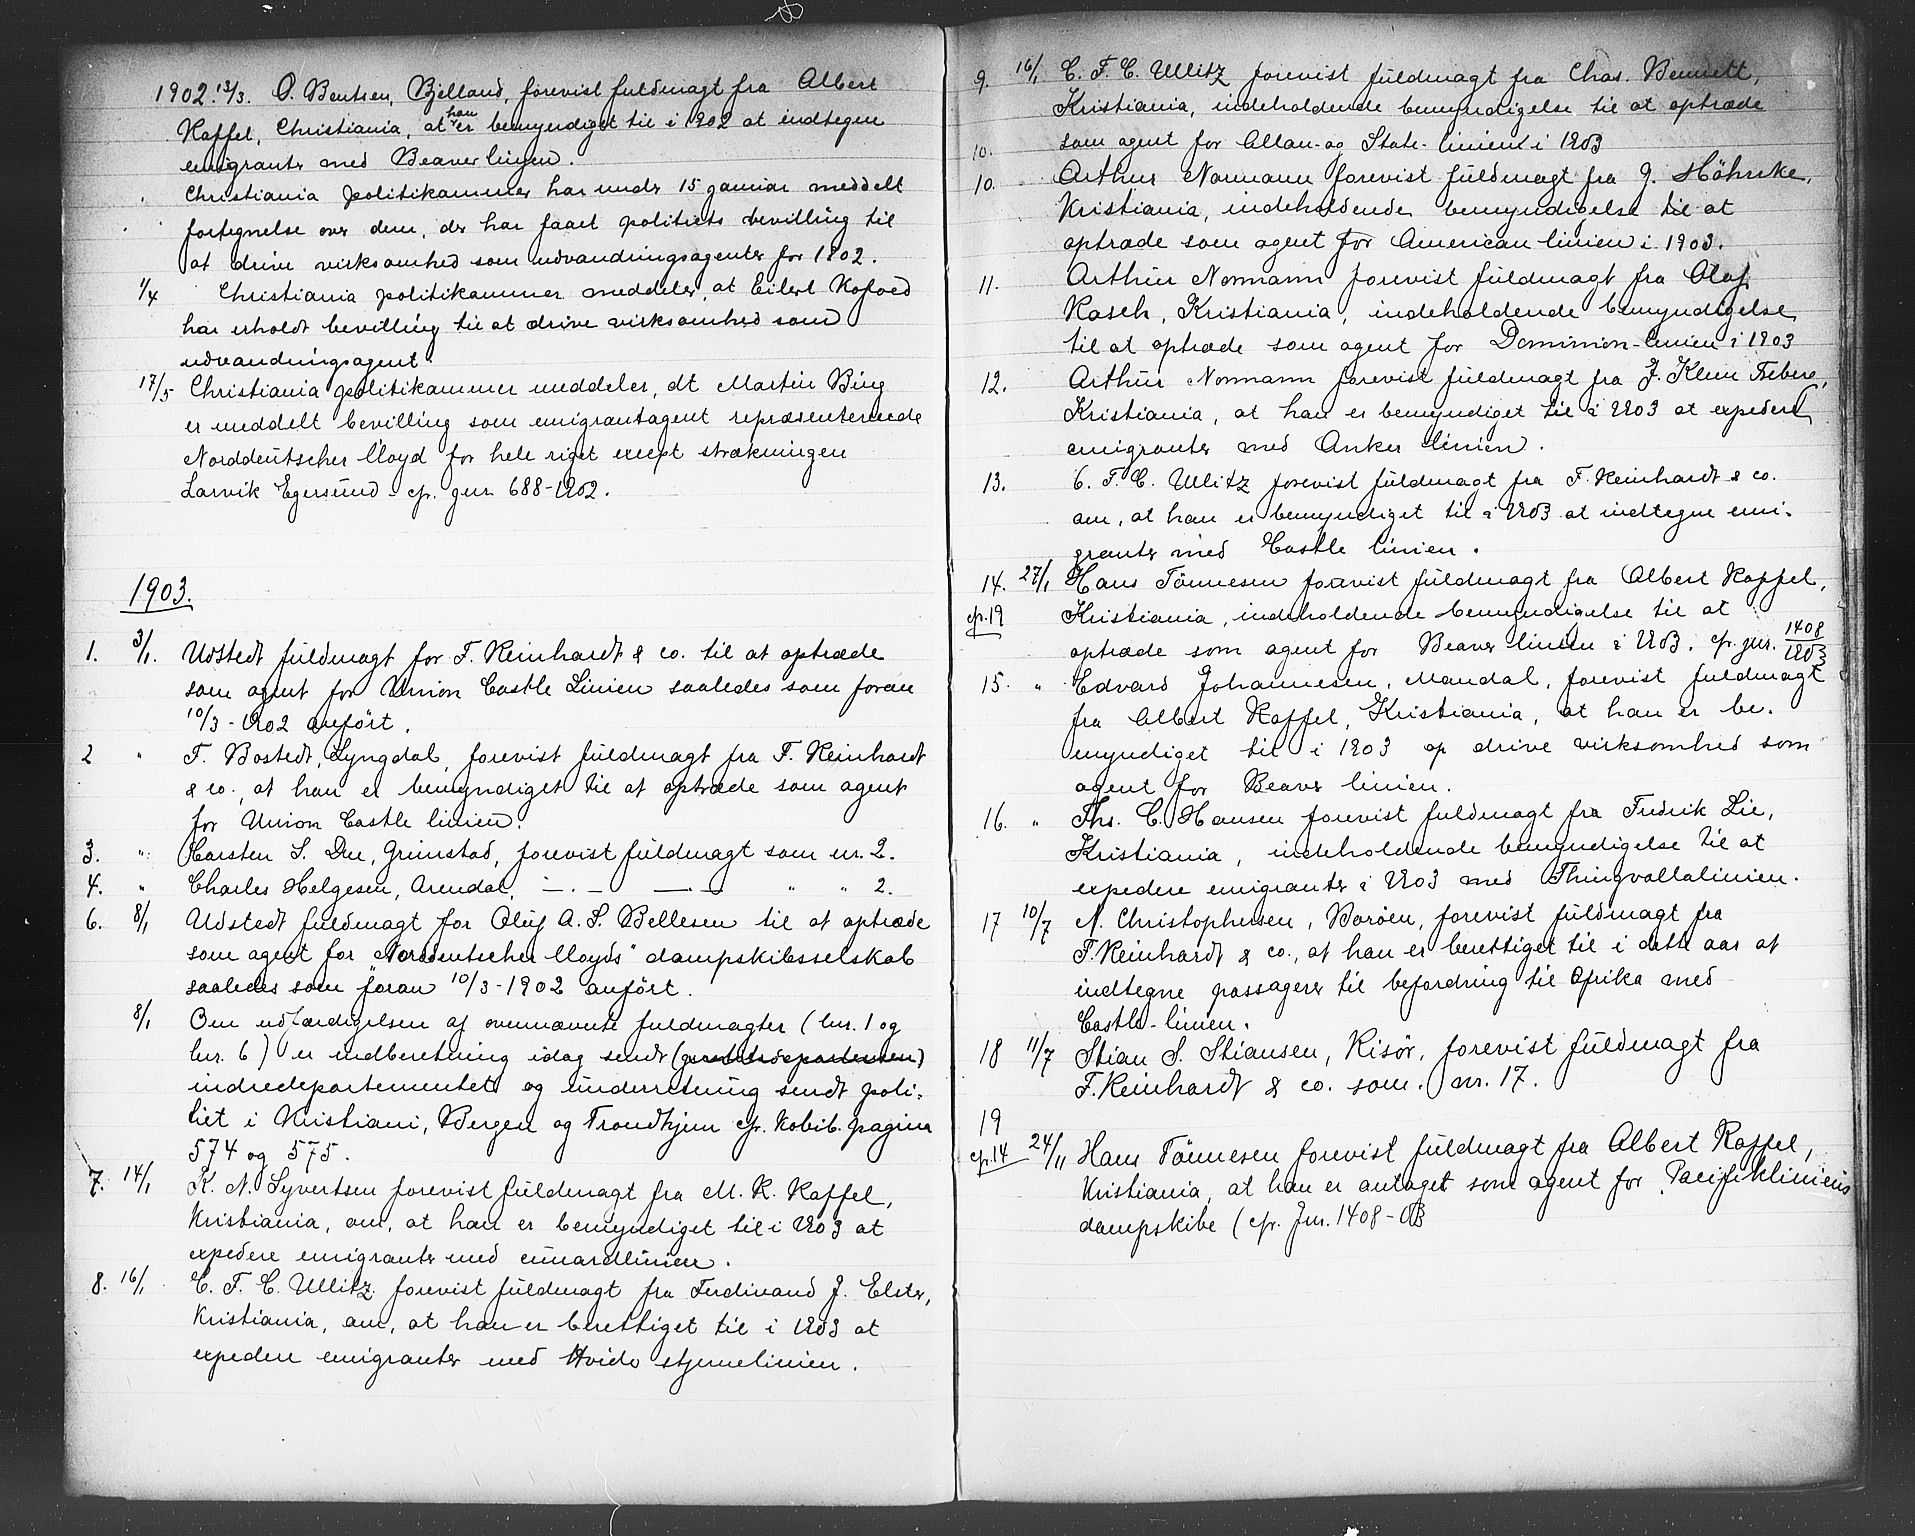 1902. 13/3. O. Bentsen, Bjelland, forevist fuldmagt fra Albert
Kaffel, Christiania, at han er bemyndiget til i 1902 at indtegne
emigranter med Beaverlinjen.
Christiania politikammer har under 15 januar meddelt
fortegnelse over dem, der har faaet politiets bevilling til
at drive virksomhed som udvandringsagenter for 1902.
1/4 Christiania politikammer meddeler, at Eilert Kofoed
har erholdt bevilling til at drive virksomhed som
udvandringsagent.
17/5 Christiania politikammer meddeler, at Martin Bing
er meddelt bevilling som emigrantagent repræsenterende
Norddeutscher Lloyd for hele riget except strækningen
Larvik Egersund cfr. jnr. 688-1902.
1903.
1. 3/1. Udstedt fuldmagt for F. Reinhardt & co. til at optræde
som agent for Union Castle Linien saaledes som foran
10/3-1902 anført.
2 " F. Bostedt, Lyngdal, forevist fuldmagt fra F. Reinhardt
& co., at han er bemyndiget til at optræde som agent
for Union Castle linien.
3. " Carsten S. Due, Grimstad, forevist fuldmagt som nr. 2.
4. " Charles Helgesen, Arendal, —.— —.— " " 2.
6. 8/1 Udstedt fuldmagt for Oluf A. S. Bellesen til at optræde
som agent for "Norddeutscher Lloyds" dampskibsselskab
saaledes som foran 10/3-1902 anført.
8/1 Om udfærdigelsen af ovennævnte fuldmagter (lnr. 1 og
lnr. 6) er indberetning idag sendt
indredepartementet og underretning sendt poli-
tiet i Kristiani, Bergen og Trondhjem cfr. Kobib. pagina
574 og 575.
7. 14/1 K. N. Syvertsen forevist fuldmagt fra M. R. Kaffel,
Kristiania, om, at han er bemyndiget til i 1903 at
expedere emigranter med cunardlinien.
8. 16/1 C. F. C. Ullitz forevist fuldmagt fra Ferdinand J. Elster,
Kristiania, om, at han er berettiget til i 1903 at
expedere emigranter med Hvide stjernelinien.
9. 16/1 C. F. C. Ullitz forevist fuldmagt fra Chas. Bennett,
Kristiania, indeholdende bemyndigelse til at optræde
10. som agent for Allan- og State-linien i 1903
10. " Arthur Normann forevist fuldmagt fra J. Höhnke,
Kristiania, indeholdende bemyndigelse til at
optræde som agent for American linien i 1903.
11. Arthur Normann forevist fuldmagt fra Olaf
Rasch, Kristiania, indeholdende bemyndigelse
til at optræde som agent for Dominion-linien i 1903
12. Arthur Normann forevist fuldmagt fra J. Klem
Kristiania, at han er bemyndiget til i 1903 at expedere
emigranter med Anker linien.
13. C. F. C. Ullitz forevist fuldmagt fra F. Reinhardt & co.
om, at han er bemyndiget til i 1903 at indtegne emi-
granter med Castle linien.
14. 27/1 Hans Tönnesen forevist fuldmagt fra Albert Kaffel,
cfr. 19 Kristiania, indeholdende bemyndigelse til at
optræde som agent for Beaver linien i 1903. cfr jnr. 1408/1903
15. " Edvard Johannesen, Mandal, forevist fuldmagt
fra Albert Kaffel, Kristiania, at han er be-
myndiget til i 1903 op drive virksomhed som
agent for Beaver linien.
16. " Ths. C. Hansen forevist fuldmagt fra Fredrik Lie,
Kristiania, indeholdende bemyndigelse til at
expedere emigranter i 1903 med Thingvallalinien.
17 10/7 N. Christophersen, Borøen, forevist fuldmagt fra
F. Reinhardt & co., at han er berettiget til i dette aar at
indtegne passagerer til befordring til Afrika med
Castle-linien.
18 11/7 Stian S. Stiansen, Risør, forevist fuldmagt fra
F. Reinhardt & co. som nr. 17.
19
cfr. 14 24/11 Hans Tönnesen forevist fuldmagt fra Albert Kaffel,
Kristiania, at han er antaget som agent for Pacifikliniens
dampskibe (cfr. Jnr. 1408-03